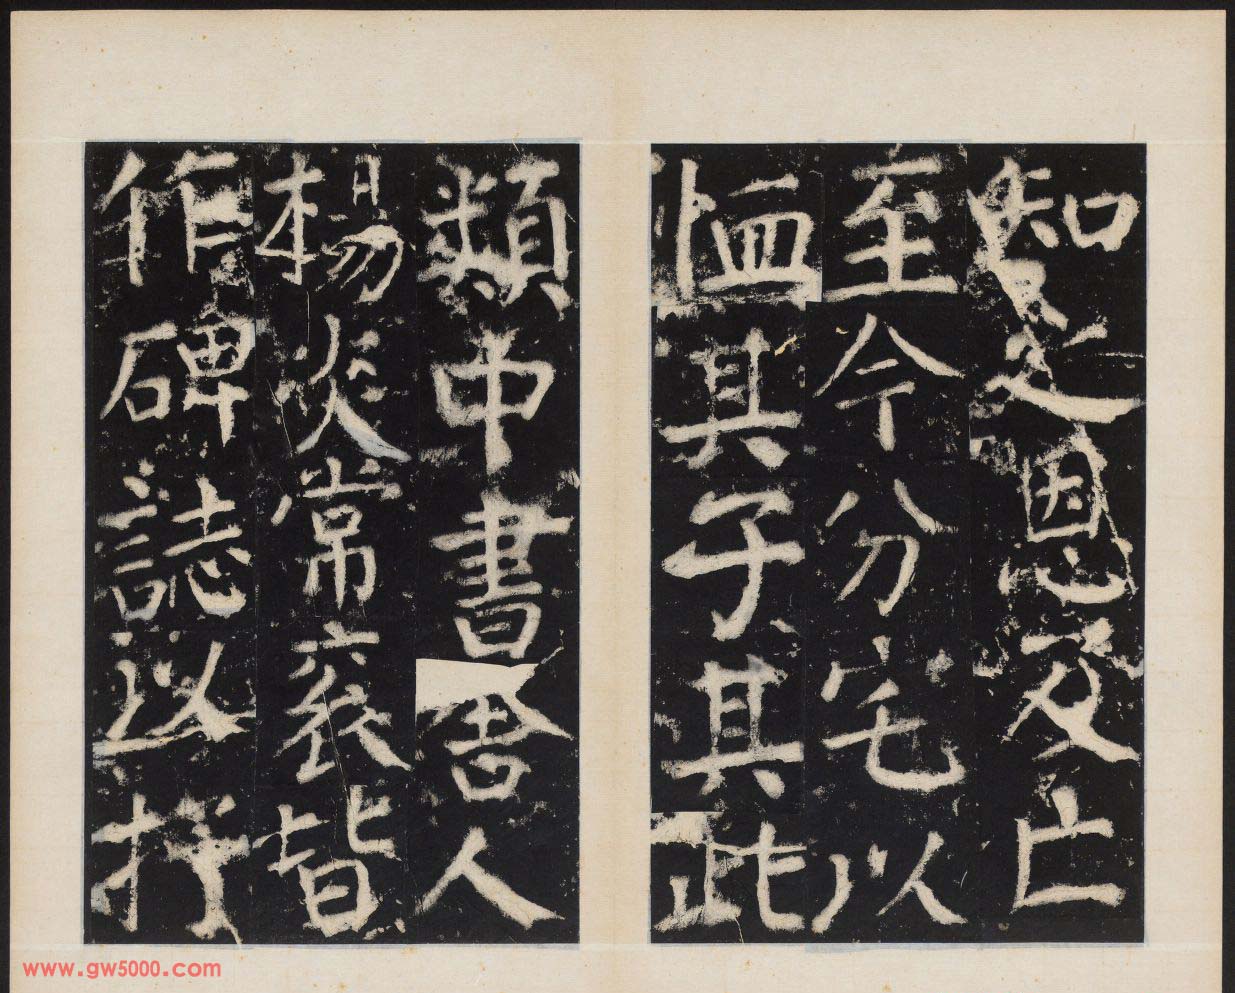 知之恩及亡
至今分宅以
恤其子其此
類中書舍人
楊炎常袞皆
作碑誌以抒
www.gw5000.com